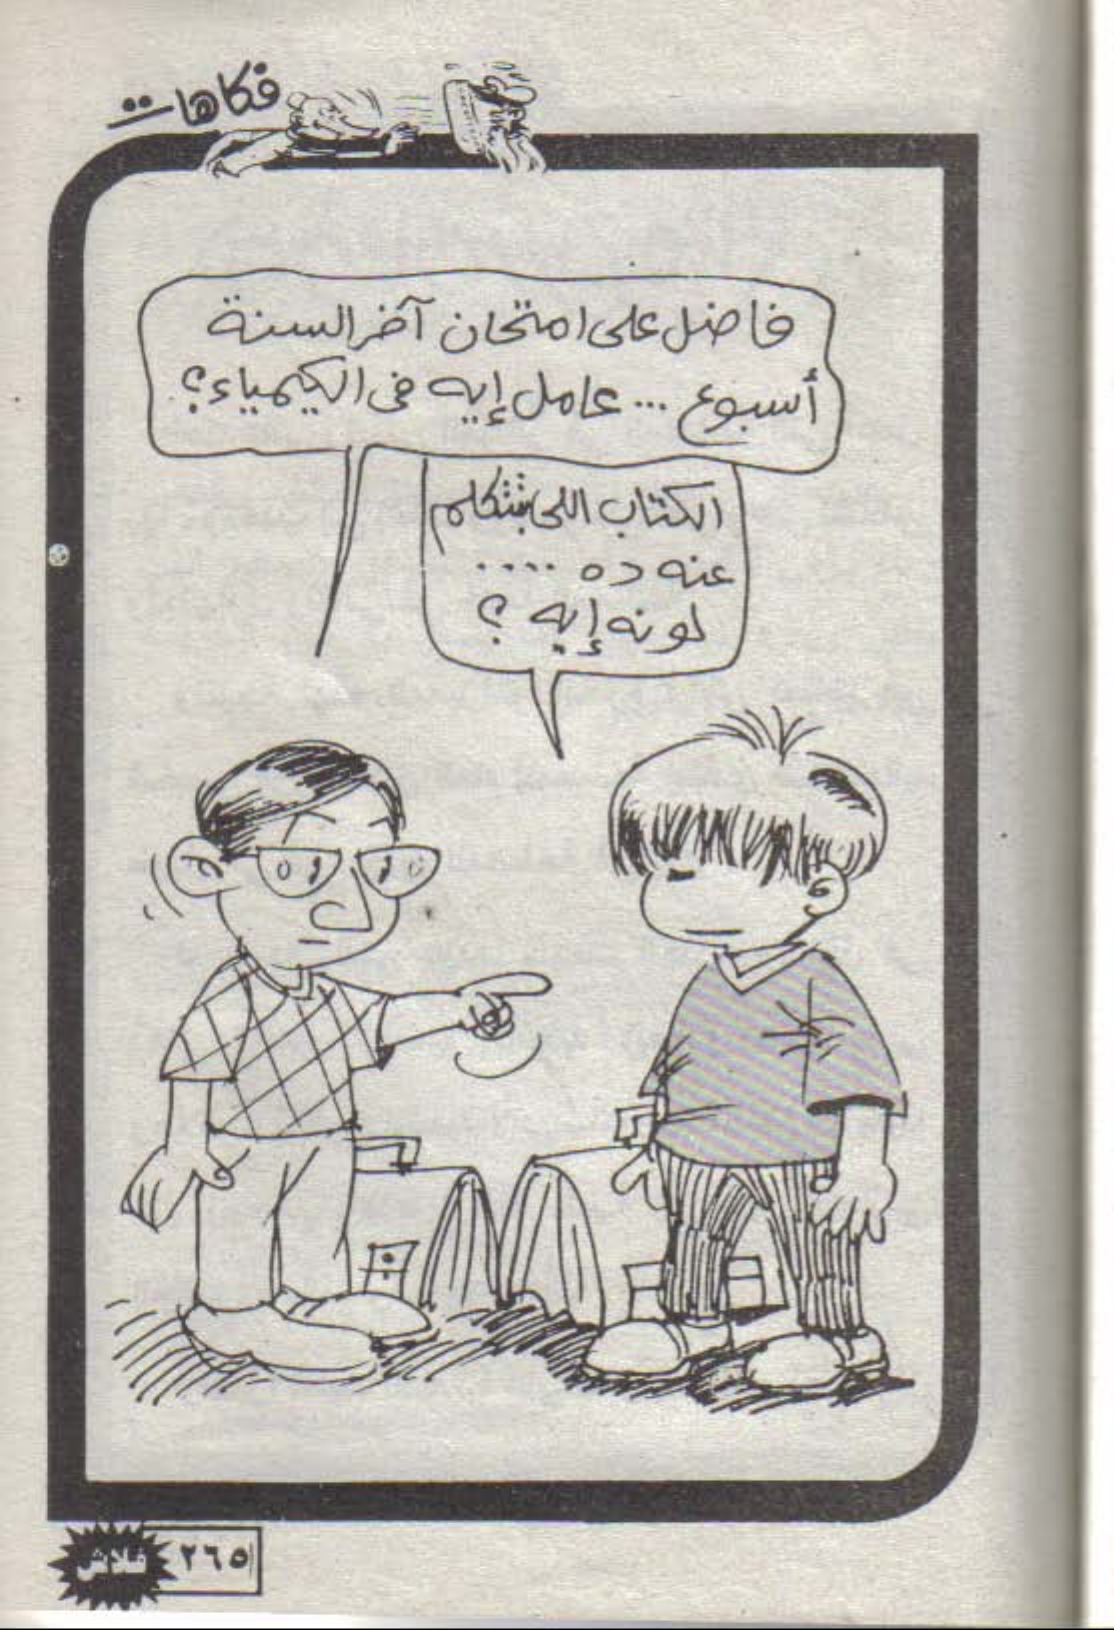 فكاهات
فاضل على امتحان آخر السنة
أسبوع ... عامل إيه فى الكيمياء؟
الكتاب اللى بتتكلم
عنه ده ....
لونه إيه ؟
فلاش ٢٦٥